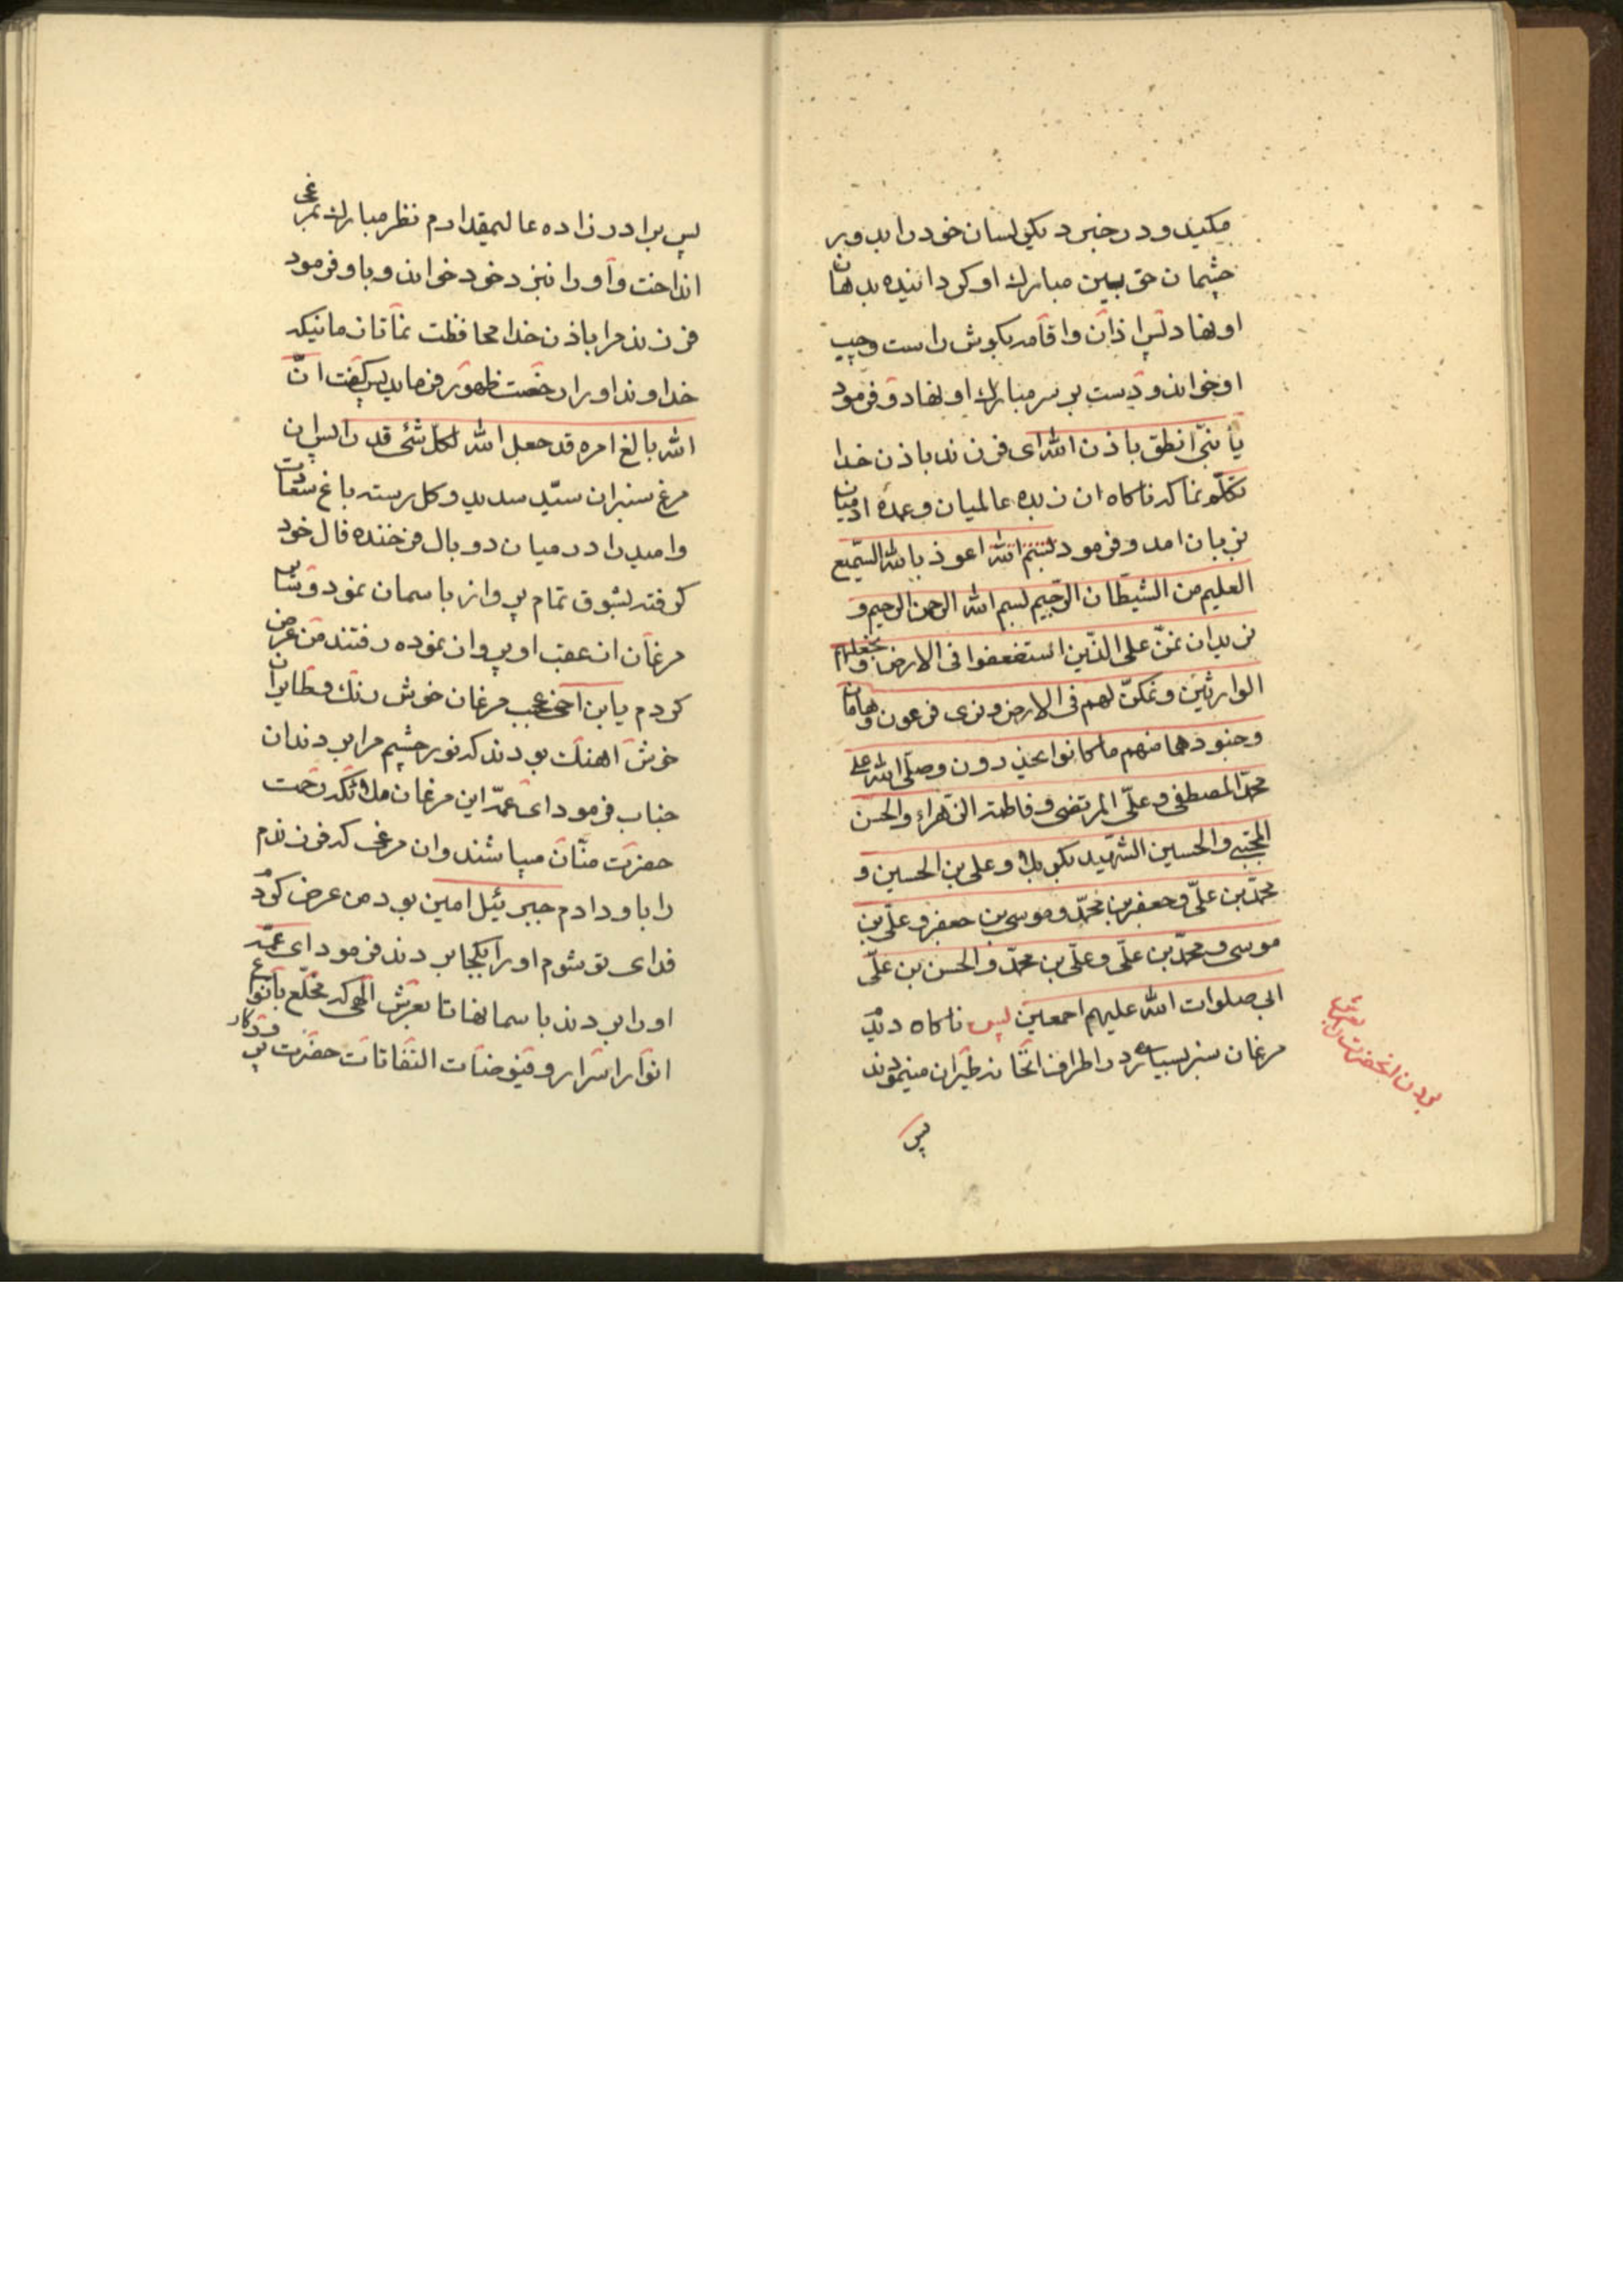 میکید و در خبر دیکر لسان خود را بد و بر
چشمان حق ببین مبارک او کردانیده بدهان
او نهاد پس اذان و اقامه بکوش راست و چپ
او خواند و دست بر سر مبارک او نهاد و فرمود
یا بنیّ انطق باذن الله ای فرزند باذن خدا
تکلّم نما که ناکاه ان زبده عالمیان و عمده ادمیان
بزبان امد و فرمود بسم الله اعوذ بالله السّمیع
العلیم من الشیطان الرّجیم بسم الله الرحمن الرحیم و
نرید ان نمنّ علی الذّین استضعفوا فی الارض و نجعلهم
الوارثین و نمکنّ لهم فی الارض و نری فرعون و هامان
و جنودهما منهم ما کانوا یحذرون و صلّی الله علی
محمّد المصطفی و علّی المرتضی و فاطمة الزّهراء و الحسن
المجتبی و الحسین الشهید بکربلا و علی بن الحسین و
محمّد بن علّی و جعفر بن محمّد و موسی بن جعفر و علّی بن
موسی و محمّد بن علّی و علّی بن محمّد و الحسن بن علّی
ابی صلوات الله علیهم اجمعین پس ناکاه دید
مرغان سبز بسیاری در اطراف انخانه طیران مینمودند
پس
بردن انحضرت را بعرش
پس برادر زاده عالیمقدارم نظر مبارک بمرغی
انداخت و او را بنزد خود خواند و باو فرمود
فرزند مرا باذن خدا محافظت نما تا زمانیکه
خداوند او را رخصت ظهور فرماید پس کفت انّ
الله بالغ امره قد جعل الله لکلّ شئ قدرا پس ان
مرغ سبز ان سیّد سدید و کل رسته باغ سعادت
و امید را در میان دو بال فرخنده فال خود
کرفته بشوق تمام پرواز باسمان نمود و سایر
مرغان از عقب او پرواز نموده رفتند من عرض
کردم یابن اخی عجب مرغان خوش رنک و طایران
خوش اهنک بودند که نور چشم مرا بردند ان
جناب فرمود ای عمّه این مرغان ملائکه رحمت
حضرت منّان میباشند و ان مرغی که فرزندم
را باو دادم جبرئیل امین بود من عرض کردم
فدای تو شوم او را بکجا بردند فرمود ای عمّه
او را بردند باسمانها تا بعرش الهی که مخلّع بانواع
انوار اسرار و فیوضات التفاتات حضرت پروردکار